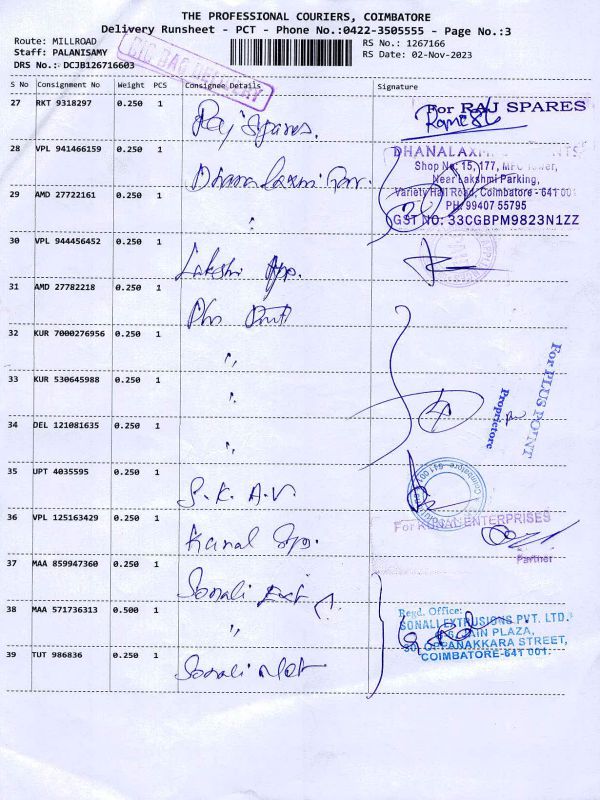 THE PROFESSIONAL COURIERS, COIMBATORE
Delivery Runsheet - PCT - Phone No.:0422-3505555 - Page No.:3
Route: MILLROAD RS No.: 1267166
Staff: PALANISAMY RS Date: 02-Nov-2023
DRS No.: DCJB126716603
S No Consignment No Weight PCS Consignee Details Signature
27 RKT 9318297 0.250 1 Raj Spares. For RAJ SPARES
Ramesh
28 VPL 941466159 0.250 1 Dhanalaxmi
Shop No: 15, 177, Tower,
Near Lakshmi Parking,
Variety Hall Road, Coimbatore - 641 001
PH: 99407 55795
GST NO: 33CGBPM9823N1ZZ
29 AMD 27722161 0.250 1 "
30 VPL 944456452 0.250 1 App.
31 AMD 27782218 0.250 1
32 KUR 7000276956 0.250 1 "
33 KUR 530645988 0.250 1 "
34 DEL 121081635 0.250 1 "
For PLUS POINT
Proprietore
35 UPT 4035595 0.250 1 S. K. A. V.
Coimbatore 641 001
36 VPL 125163429 0.250 1
For ENTERPRISES
Partner
37 MAA 859947360 0.250 1 Sonali Ext
38 MAA 571736313 0.500 1 "
Regd. Office:
SONALI EXTRUSIONS PVT. LTD.
MAIN PLAZA,
OPPANAKKARA STREET,
COIMBATORE-641 001.
39 TUT 986836 0.250 1 Sonali